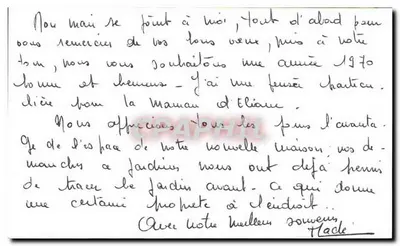 Mon mari se joint à moi, tout d'abord pour
vous remercier de vos bons vœux, puis à notre
tour, nous vous souhaitons une année 1970
bonne et heureuse - J'ai une pensée particu-
lière pour la maman d'Eliane.
Nous apprécions tous les jours l'avanta-
ge de l'espace de notre nouvelle maison; nos di-
manches à jardiner nous ont déjà permis
de tracer le jardin avant - ce qui donne
une certaine propreté à l'endroit..
Avec notre meilleur souvenir